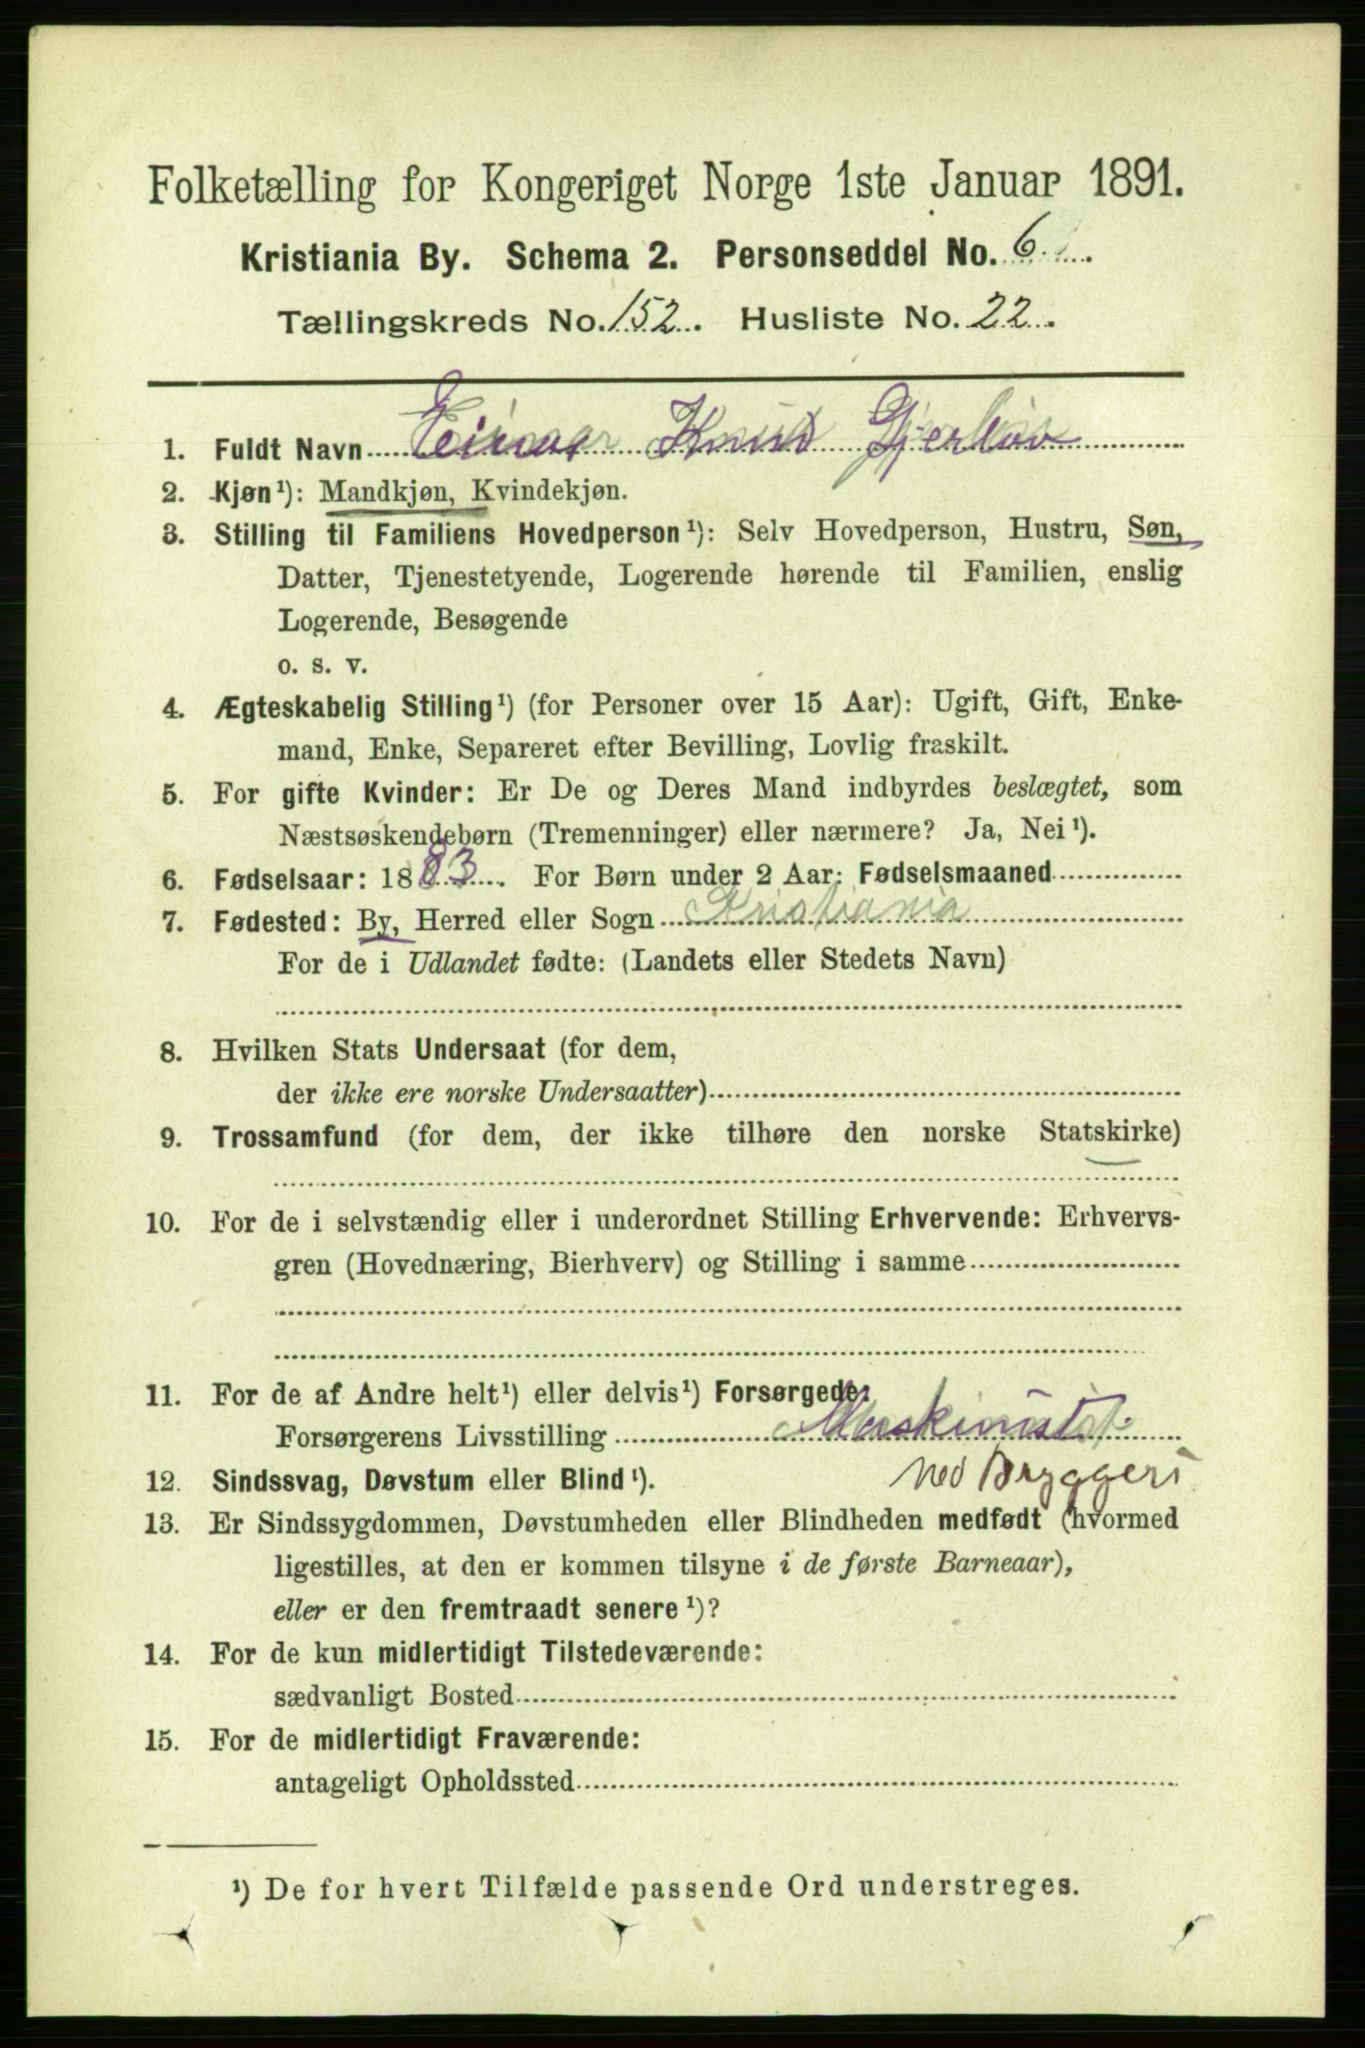 Folketælling for Kongeriget Norge 1ste Januar 1891.
Kristiania By. Schema 2. Personseddel No. 6.
Tællingskreds No. 152. Husliste No. 22.
1. Fuldt Navn Einar Knud Gjerløv
2. Kjøn¹): Mandkjøn, Kvindekjøn.
3. Stilling til Familiens Hovedperson¹): Selv Hovedperson, Hustru, Søn,
Datter, Tjenestetyende, Logerende hørende til Familien, enslig
Logerende, Besøgende
o. s. v.
4. Ægteskabelig Stilling¹) (for Personer over 15 Aar): Ugift, Gift, Enke-
mand, Enke, Separeret efter Bevilling, Lovlig fraskilt.
5. For gifte Kvinder: Er De og Deres Mand indbyrdes beslægtet, som
Næstsøskendebørn (Tremenninger) eller nærmere? Ja, Nei¹).
6. Fødselsaar: 1883. For Børn under 2 Aar: Fødselsmaaned
7. Fødested: By, Herred eller Sogn Kristiania
For de i Udlandet fødte: (Landets eller Stedets Navn)
8. Hvilken Stats Undersaat (for dem,
der ikke ere norske Undersaatter)
9. Trossamfund (for dem, der ikke tilhøre den norske Statskirke)
10. For de i selvstændig eller i underordnet Stilling Erhvervende: Erhvervs-
gren (Hovednæring, Bierhverv) og Stilling i samme
11. For de af Andre helt¹) eller delvis¹) Forsørgede:
Forsørgerens Livsstilling Maskinist
ved Bryggeri
12. Sindssvag, Døvstum eller Blind¹).
13. Er Sindssygdommen, Døvstumheden eller Blindheden medfødt (hvormed
ligestilles, at den er kommen tilsyne i de første Barneaar),
eller er den fremtraadt senere¹)?
14. For de kun midlertidigt Tilstedeværende:
sædvanligt Bosted
15. For de midlertidigt Fraværende:
antageligt Opholdssted
¹) De for hvert Tilfælde passende Ord understreges.